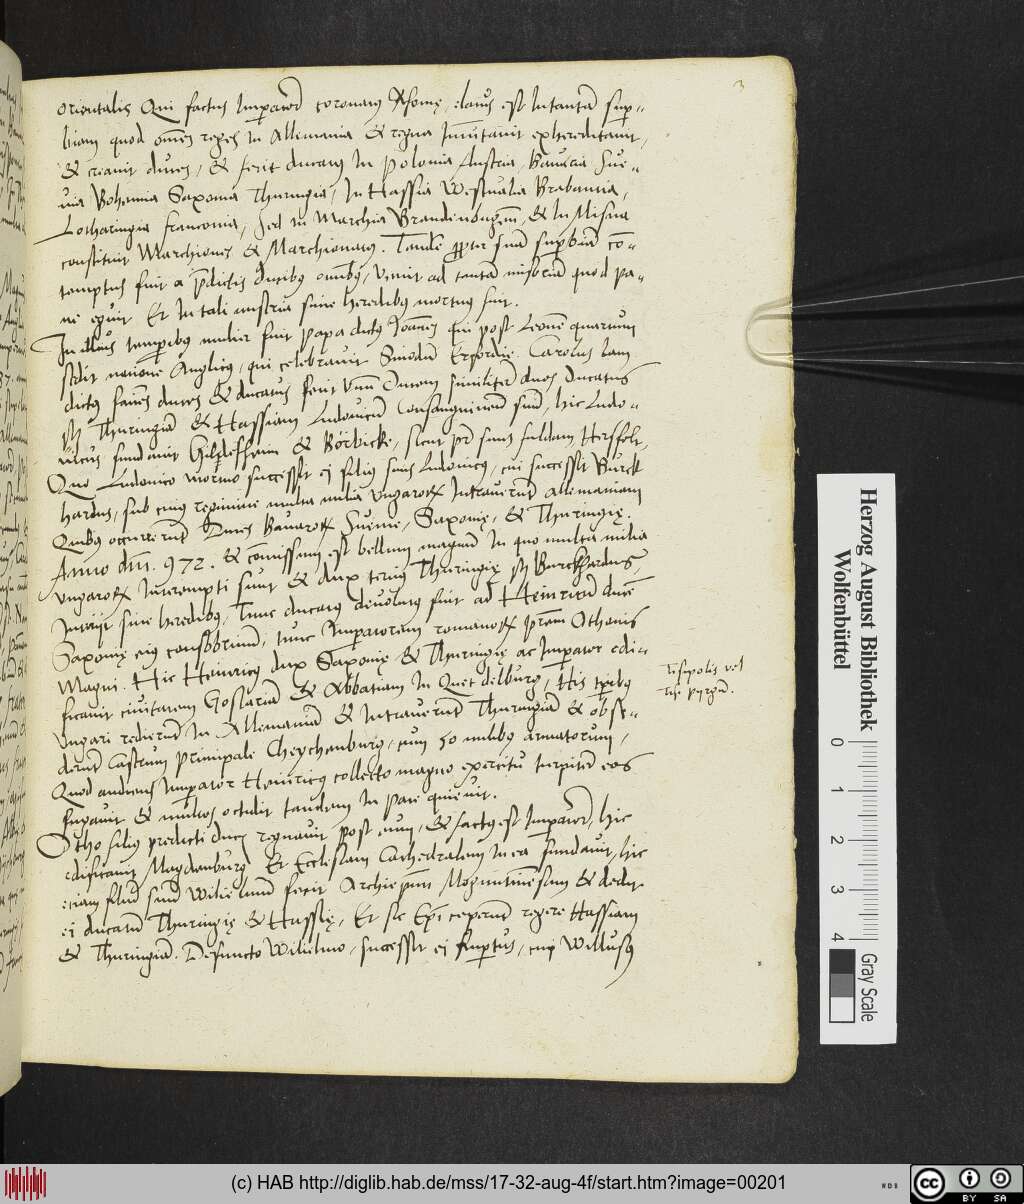 3
orientalis Qui factus Imperator coronatus Rome, elatus est in tantam super-
biam quod omnes reges in Allemania & regna Inmutavit exhereditavit,
& creavit duces, & fecit ducatus In Polonia Austria, Bavaria Sue-
via Bohemia Saxonia Thuringia, In Hassia Westvalia Brabantia,
Lotharingia Franconia, Sed in Marchia Brandenburgensi, & In Misna
constituit Marchiones & Marchionatus. Tandem propter suam superbiam con-
temptus fuit a predictis ducibus omnibus, venit ad tantam miseriam quod pa-
ne eguit Et In tali miseria sine heredibus mortuus fuit.
In illius temporibus mulier fuit Papa dictus Joannes qui post Leonem quartum
sedit natione Anglicus, qui celebravit Sinodum Erfordie. Carolus iam
dictus faciens duces & ducatus fecit unum Ducem similiter duos Ducatus
scilicet Thuringiam & Hassiam Ludovicum Consanguineum suum, hic Ludo-
vicus fundavit Hildesheim & Borbicke, sicut pater suus fuldam Hersfelt,
Quo Ludovico mortuo successit ei filius suus Ludovicus, cui successit Burck
hardus, sub cuius regimine multa milia Ungarorum Intraverunt Allemaniam
Quibus occurrerunt Duces Bavarorum Suevie, Saxonie, & Thuringie.
Anno dni. 972. & commissum est bellum magnum In quo multa milia
Ungarorum Interempti sunt & dux tertius Thuringie scilicet Burckhardus,
Interiit sine heredibus, Tunc ducatus devolutus fuit ad Heinricum ducem
Saxonie eius consobrinum, tunc Imperatorem romanorum patrem Othonis
Magni. Hic Heinricus dux Saxonie & Thuringie ac Imperator edi-
ficavit civitatem Goslariam & Abbatiam In Quetdelburg, His temporibus
Ungari redierunt In Allemaniam & Intraverunt Thuringiam & obse-
derunt Castrum principale Cheychenburg, cum 50 milibus armatorum,
Quod audiens Imperator Heinricus collecto magno exercitu turpiter eos
fugavit & multos occidit tandem In pace quievit.
Otho filius predicti ducis regnavit post eum, & factus est Imperator, hic
edificavit Magdenburg Et Ecclesiam Cathedralem In ea fundavit, hic
etiam filium suum Wilielmum fecit Archiepiscopum Moguntinensem & dedit
ei ducatum Thuringie & Hassie, Et sic Episcopi ceperunt regere Hassiam
& Thuringiam. Defuncto Wilielmo, successit ei Rupertus, cui Willusus
Herzog August Bibliothek
Wolfenbüttel
0 1 2 3 4
Gray Scale
(c) HAB http://diglib.hab.de/mss/17-32-aug-4f/start.htm?image=00201
WDB
cc BY SA